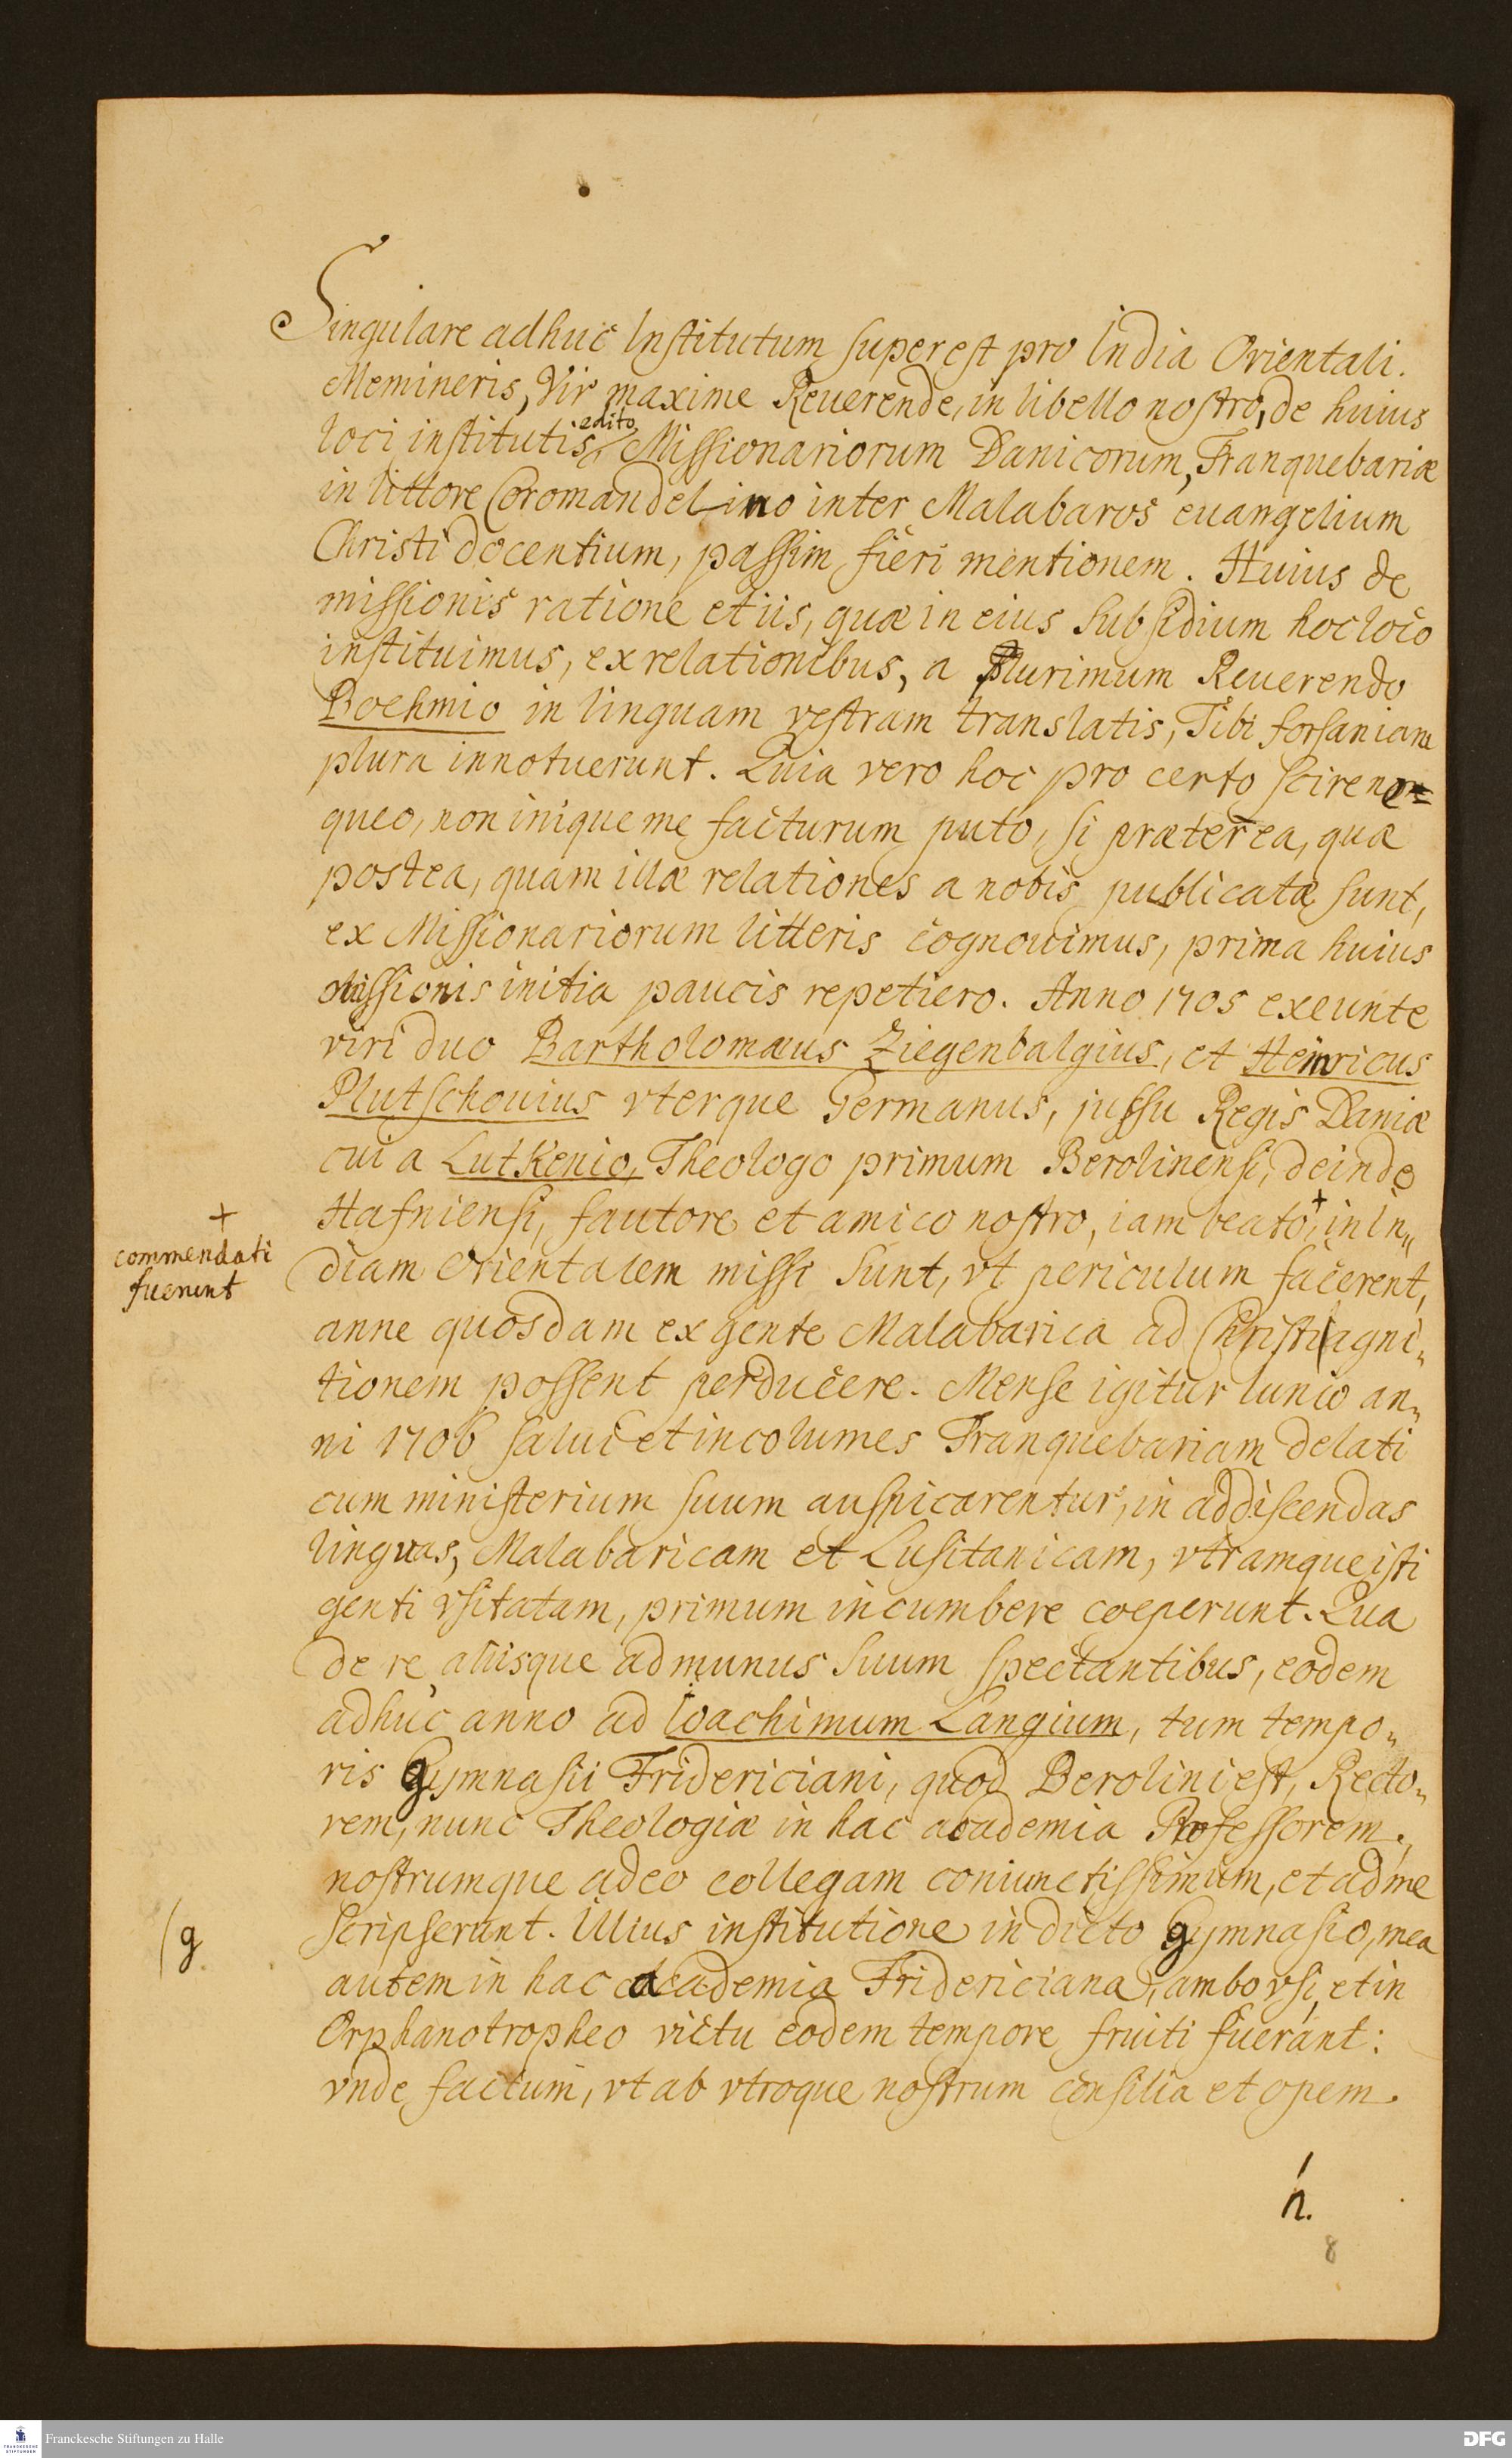 Singulare adhuc Institutum superest pro India Orientali.
Memineris, Vir maxime Reuerende, in libello nostro, de huius
edito
loci institutis, Missionariorum Danicorum, Tranquebariæ
in littore Coromandelino inter Malabaros euangelium
Christi docentium, passim fieri mentionem. Huius de
missionis ratione et iis, quæ in eius subsidium hoc loco
instituimus, ex relationibus, a plurimum Reuerendo
Boehmio in linguam vestram translatis, Tibi forsan iam
plura innotuerunt. Quia vero hoc pro certo scire
queo, non inique me facturum puto, si præterea, quæ
postea, quam illæ relationes a nobis publicatæ sunt,
ex Missionariorum litteris cognouimus, prima huius
missionis initia paucis repetiero. Anno 1705 exeunte
viri duo Bartholomæus Ziegenbalgius, et Henricus
Plutschouius vterque Germanus, jussu Regis Daniæ
cui a Lutkenio, Theologo primum Berolinensi, deinde
Hafniensi, fautore et amico nostro, iam beato, + in In„
+
commendati
fuerunt
diam Orientalem missi sunt, vt periculum facerent,
anne quosdam ex gente Malabarica ad Christi agni„
tionem possent perducere. Mense igitur Iunio an„
ni 1706 salui et incolumes Tranquebariam delati
cum ministerium suum auspicarentur, in addiscendas
linguas, Malabaricam et Lusitanicam, vtramque isti
genti vsitatam, primum incumbere coeperunt. Qua
de re, aliisque ad munus suum spectantibus, eodem
adhuc anno ad Ioachimum Langium, tum tempo„
ris gymnasii Fridericiani, quod Berolini est, Recto„
rem, nunc Theologiæ in hac academia Professorem,
nostrumque adeo collegam coniunctissimum, et ad me
scripserunt. Illius institutione in dicto gymnasio, mea
/g.
autem in hac academia Fridericiana, ambo vsi, et in
Orphanotropheo victu eodem tempore fruiti fuerant:
vnde factum, vt ab vtroque nostrum consilia et opem
n.
8
Franckesche Stiftungen zu Halle
DFG